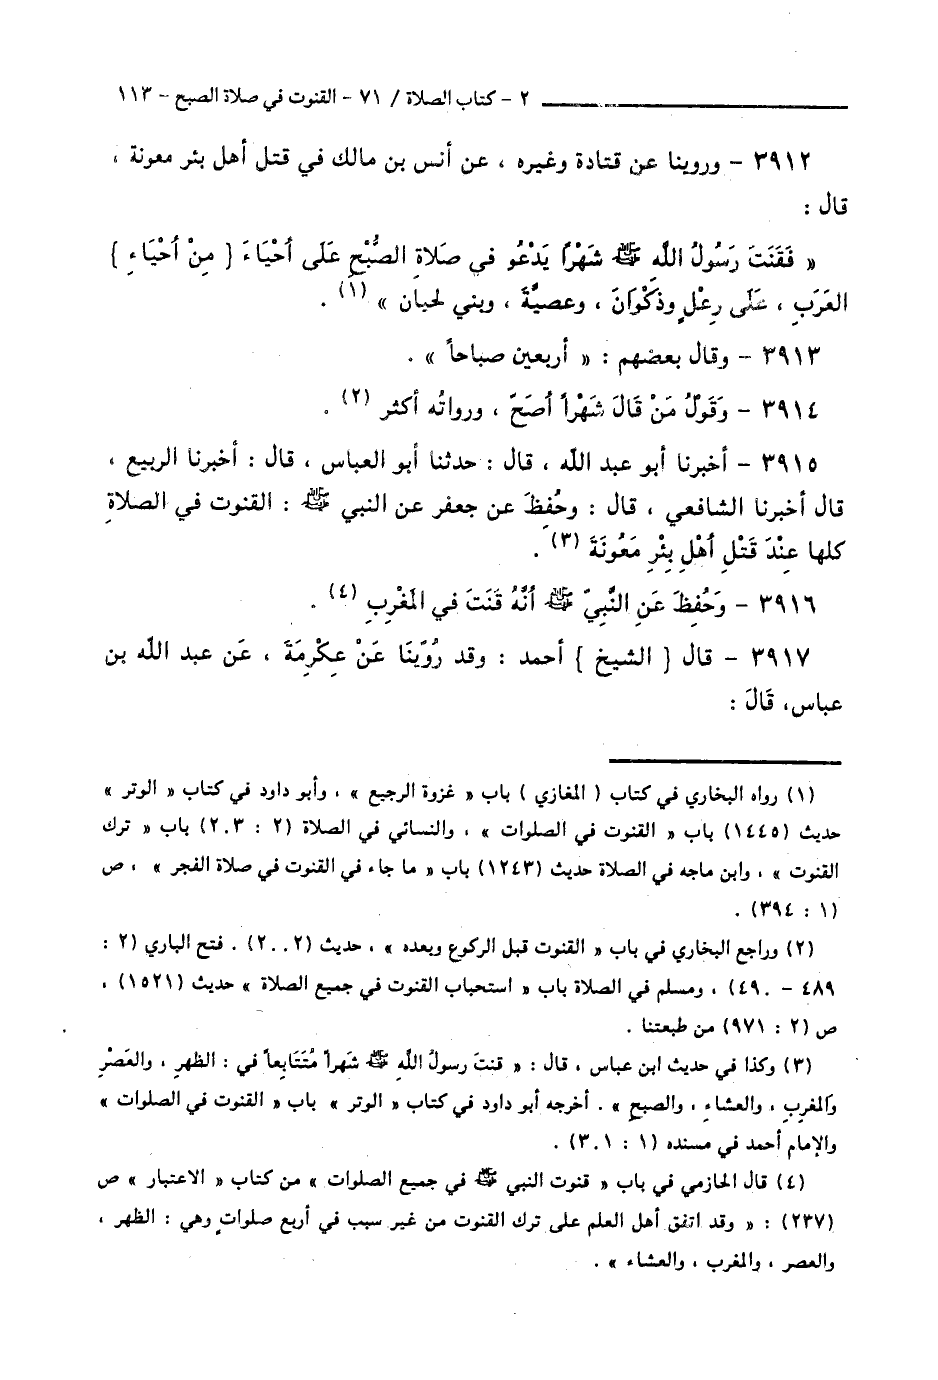 ٢ - كتاب الصلاة / ٧١ - القنوت في صلاة الصبح - ١١٣
٣٩١٢ - وروينا عن قتادة وغيره ، عن أنس بن مالك في قتل أهل بئر معونة ،
قال :
« فَقَنَتَ رَسُولُ اللَّهِ ﷺ شَهْرًا يَدْعُو في صَلاةِ الصُّبْحِ عَلَى أحْيَاءَ { مِنْ أحْيَاءِ }
العَرَبِ ، عَلَى رِعْلٍ وذَكْوَانَ ، وعصيَّةَ ، وبني لحيان » (١) .
٣٩١٣ - وقال بعضهم : « أربعين صباحاً » .
٣٩١٤ - وَقَوْلُ مَنْ قَالَ شَهْراً أصَحّ ، ورواتُه أكثر (٢) .
٣٩١٥ - أخبرنا أبو عبد اللّه ، قال : حدثنا أبو العباس ، قال : أخبرنا الربيع ،
قال أخبرنا الشافعي ، قال : وحُفِظَ عن جعفر عن النبي ﷺ : القنوت في الصلاةِ
كلها عِنْدَ قَتْلِ أهْلِ بِئْرِ مَعُونَةَ (٣) .
٣٩١٦ - وَحُفِظَ عَنِ النَّبِيّ ﷺ أنَّهُ قَنَتَ في المَغْرِبِ (٤) .
٣٩١٧ - قال { الشيخ } أحمد : وقد رُوِّينَا عَنْ عِكْرِمَةَ ، عَن عبد اللّه بن
عباس، قَالَ :
(١) رواه البخاري في كتاب ( المغازي ) باب « غزوة الرجيع » ، وأبو داود في كتاب « الوتر »
حديث (١٤٤٥) باب « القنوت في الصلوات » ، والنسائي في الصلاة (٢ : ٢.٣) باب « ترك
القنوت » ، وابن ماجه في الصلاة حديث (١٢٤٣) باب « ما جاء في القنوت في صلاة الفجر » ، ص
(١ : ٣٩٤) .
(٢) وراجع البخاري في باب « القنوت قبل الركوع وبعده » ، حديث (٢..٢) . فتح الباري (٢ :
٤٨٩ - .٤٩) ، ومسلم في الصلاة باب « استحباب القنوت في جميع الصلاة » حديث (١٥٢١) ،
ص (٢ : ٩٧١) من طبعتنا .
(٣) وكذا في حديث ابن عباس ، قال : « قنتَ رسولُ اللَّهِ ﷺ شهراً مُتَتَابِعاً في : الظهرِ ، والعَصْرِ
والمغربِ ، والعشاءِ ، والصبحِ » . أخرجه أبو داود في كتاب « الوتر » باب « القنوت في الصلوات »
والإمام أحمد في مسنده (١ : ٣.١) .
(٤) قال الحازمي في باب « قنوت النبي ﷺ في جميع الصلوات » من كتاب « الاعتبار » ص
(٢٣٧) : « وقد اتفق أهل العلم على ترك القنوت من غير سبب في أربع صلواتٍ وهي : الظهر ،
والعصر ، والمغرب ، والعشاء » .